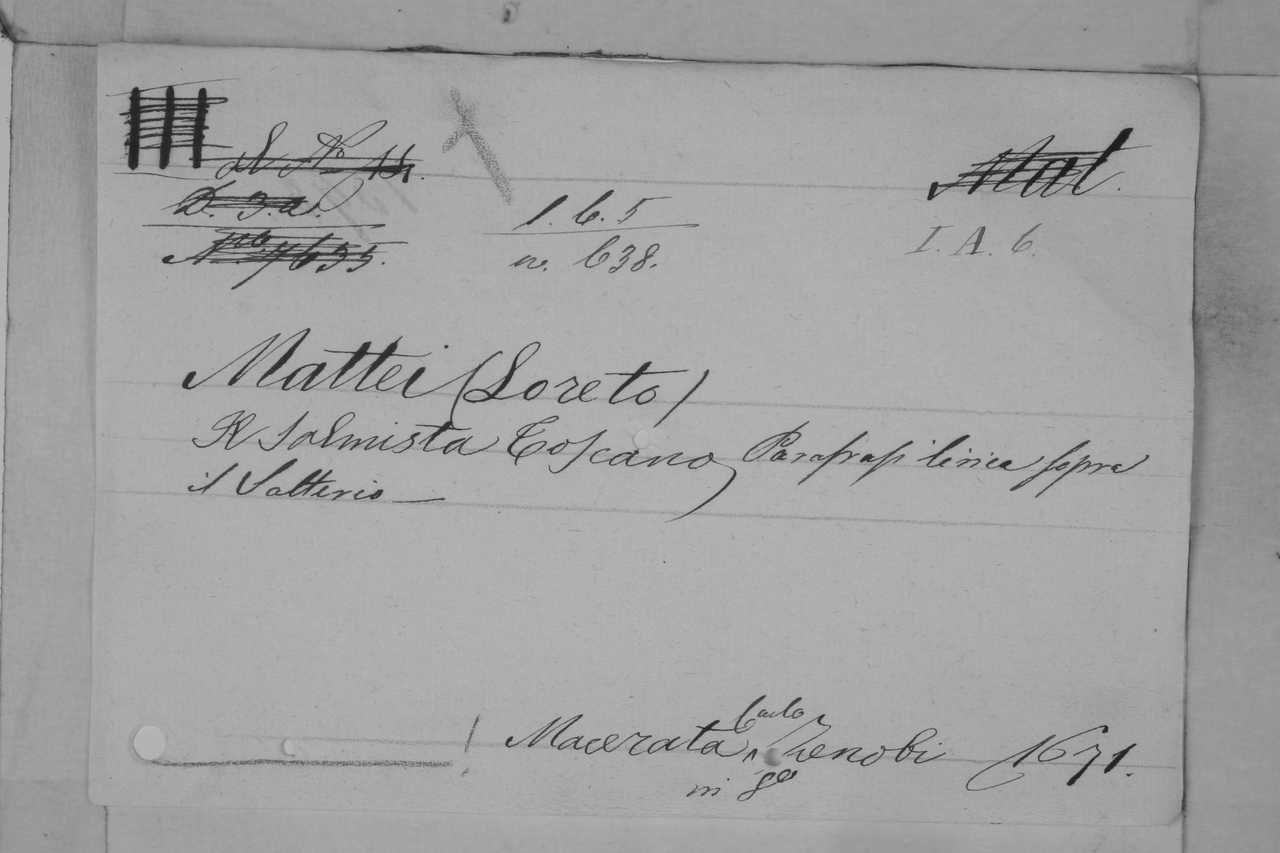 Mat.
D. 3. a.
N.ro 7635.
1. 6. 5
n. 638.
I. A. 6.
Mattei (Loreto)
Il Salmista Toscano, Parafrasi lirica sopra
il Salterio —
Macerata, Carlo Zenobi 1671.
in 8º